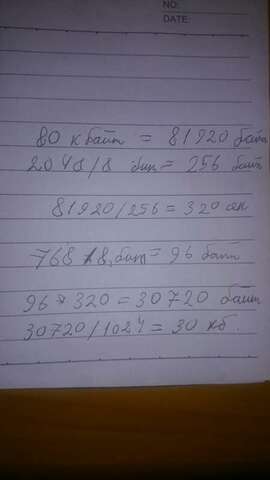 NO:
DATE:
80 кбайт = 81920 байт
2048/8 бит = 256 байт
81920/256 = 320
768/8 бит = 96 байт
96 * 320 = 30720 байт
30720/1024 = 30 кб.